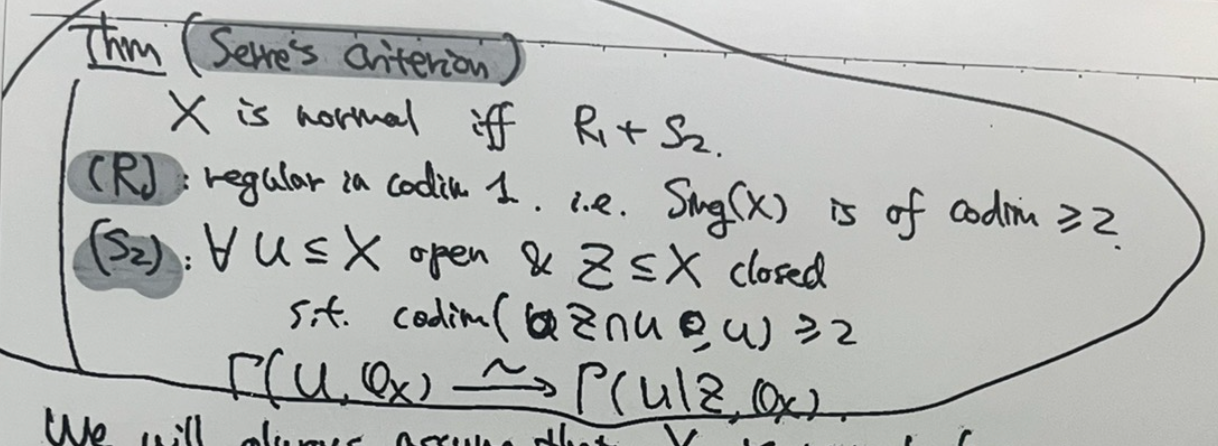 Thm (Serre's Criterion)
X is normal iff R₁ + S₂.
(R₁): regular in codim 1. i.e. Sing(X) is of codim ≥ 2.
(S₂): ∀ U ⊆ X open & Z ⊆ X closed
s.t. codim( Z∩U , U) ≥ 2
Γ(U, O_X) ⥲ Γ(U\Z, O_X).
We will always assume that X